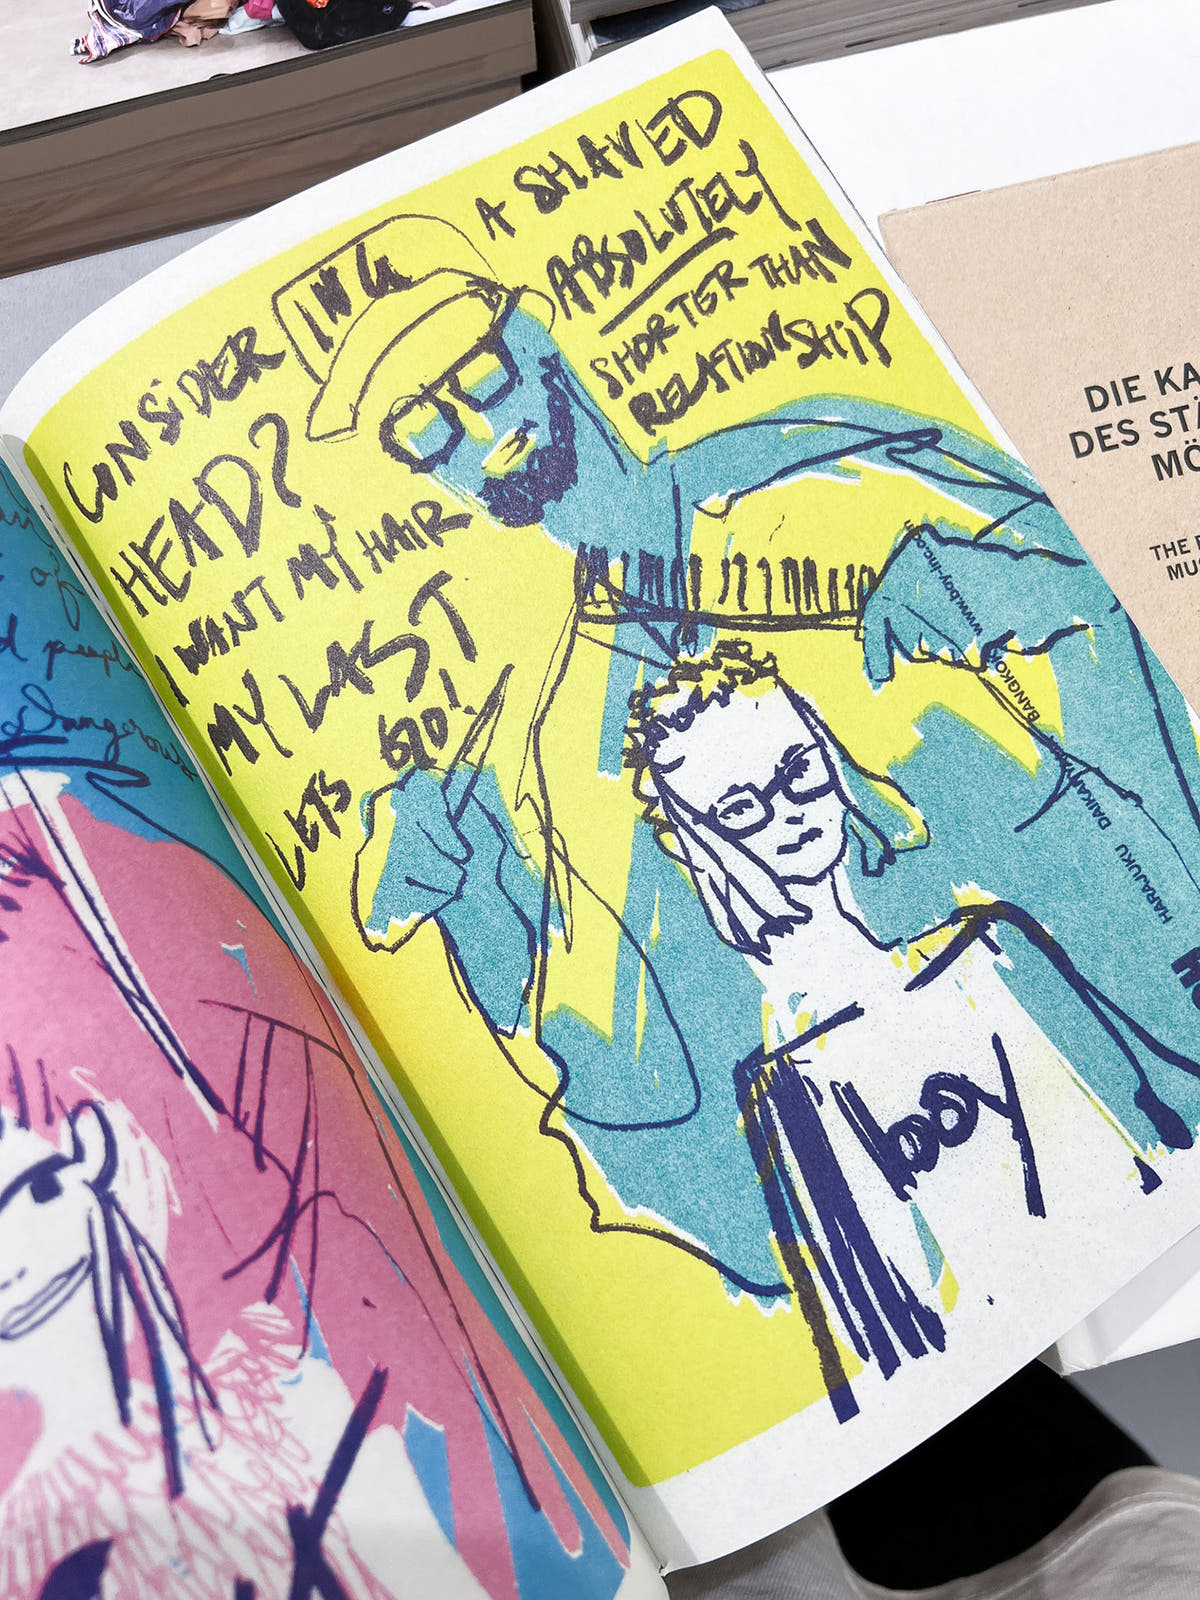 CONSIDER ING
A SHAVED
HEAD?
ABSOLUTELY
I WANT MY HAIR
SHORTER THAN
MY LAST
RELATIONSHIP
LETS GO!
boy
www.boy-inc.co
BANGKOK
HARAJUKU DAIKANY
of
people
Dangerous
DIE KA
DES STÄ
MÖ
THE
MUS